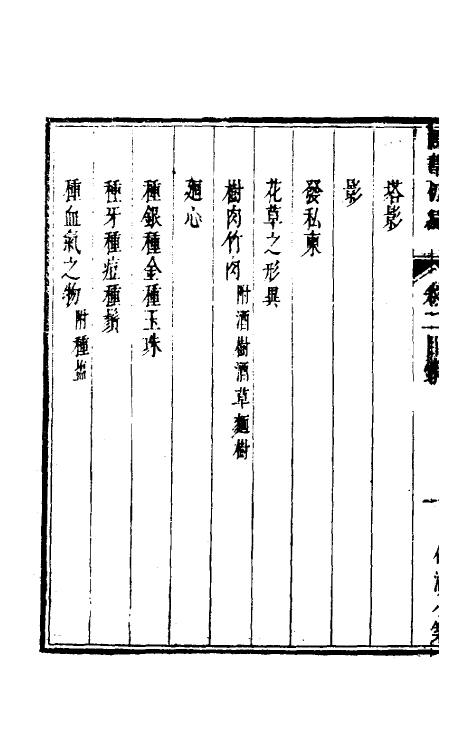 塔影
影
發私柬
花草之形異
樹肉竹肉 附酒樹酒草麵樹
廻心
種銀種金種玉珠
種牙種痘種鬚
種血氣之物 附種鹽
卷二目錄
一